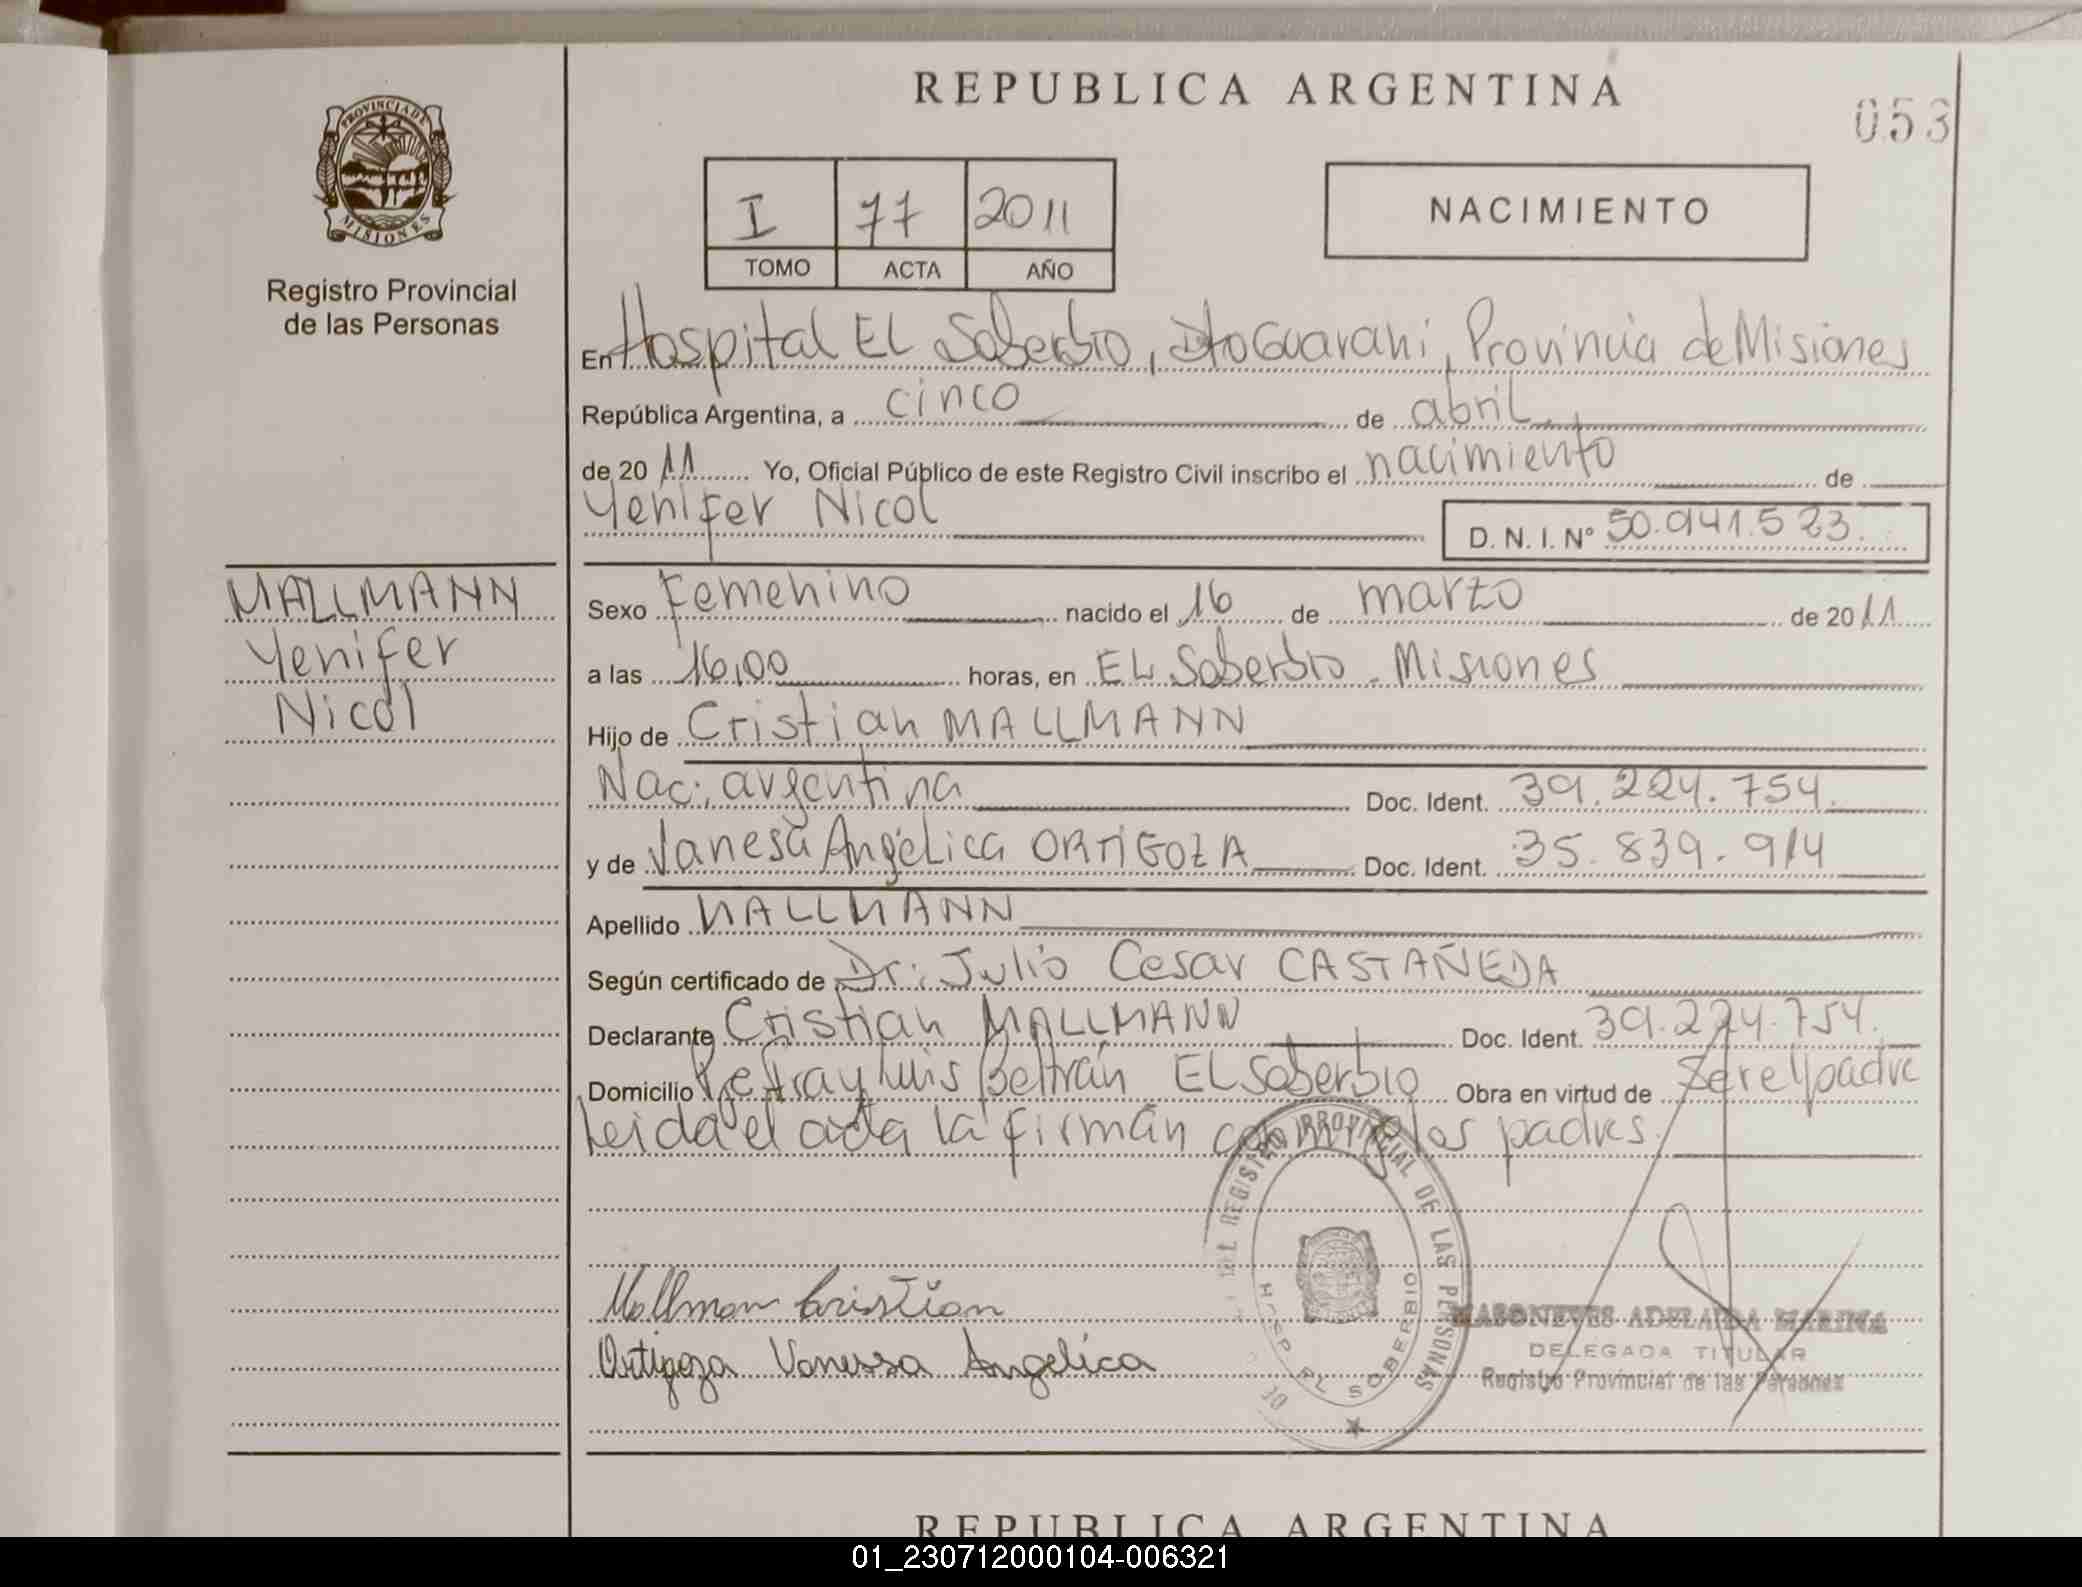 REPUBLICA ARGENTINA
053
PROVINCIA DE
MISIONES
Registro Provincial
de las Personas
I 77 2011
TOMO ACTA AÑO
NACIMIENTO
En Hospital EL Soberbio, Dto Guarani, Provincia de Misiones
República Argentina, a cinco de abril.
de 2011 Yo, Oficial Público de este Registro Civil inscribo el nacimiento de
Yenifer Nicol D. N. I. Nº 50.941.523.
MALLMANN
Yenifer
Nicol
Sexo Femenino nacido el 16 de marzo de 2011
a las 16,00 horas, en EL Soberbio - Misiones
Hijo de Cristian MALLMANN
Nac: argentina Doc. Ident. 39.224.754.
y de Vanesa Angélica ORTIGOZA Doc. Ident. 35.839.914
Apellido MALLMANN
Según certificado de Dr: Julio Cesar CASTAÑEDA
Declarante Cristian MALLMANN Doc. Ident. 39.224.754.
Domicilio Fray Luis Beltrán EL Soberbio Obra en virtud de Ser el padre
Leida el acta la firmán conmigo los padres.
REGISTRO PROVINCIAL DE LAS PERSONAS
HOSP EL SOBERBIO
Mallman Cristian
Ortigoza Vanessa Angelica
ADELAIDA MARINA
DELEGADA TITULAR
Registro Provincial de las Personas
REPUBLICA ARGENTINA
01_230712000104-006321